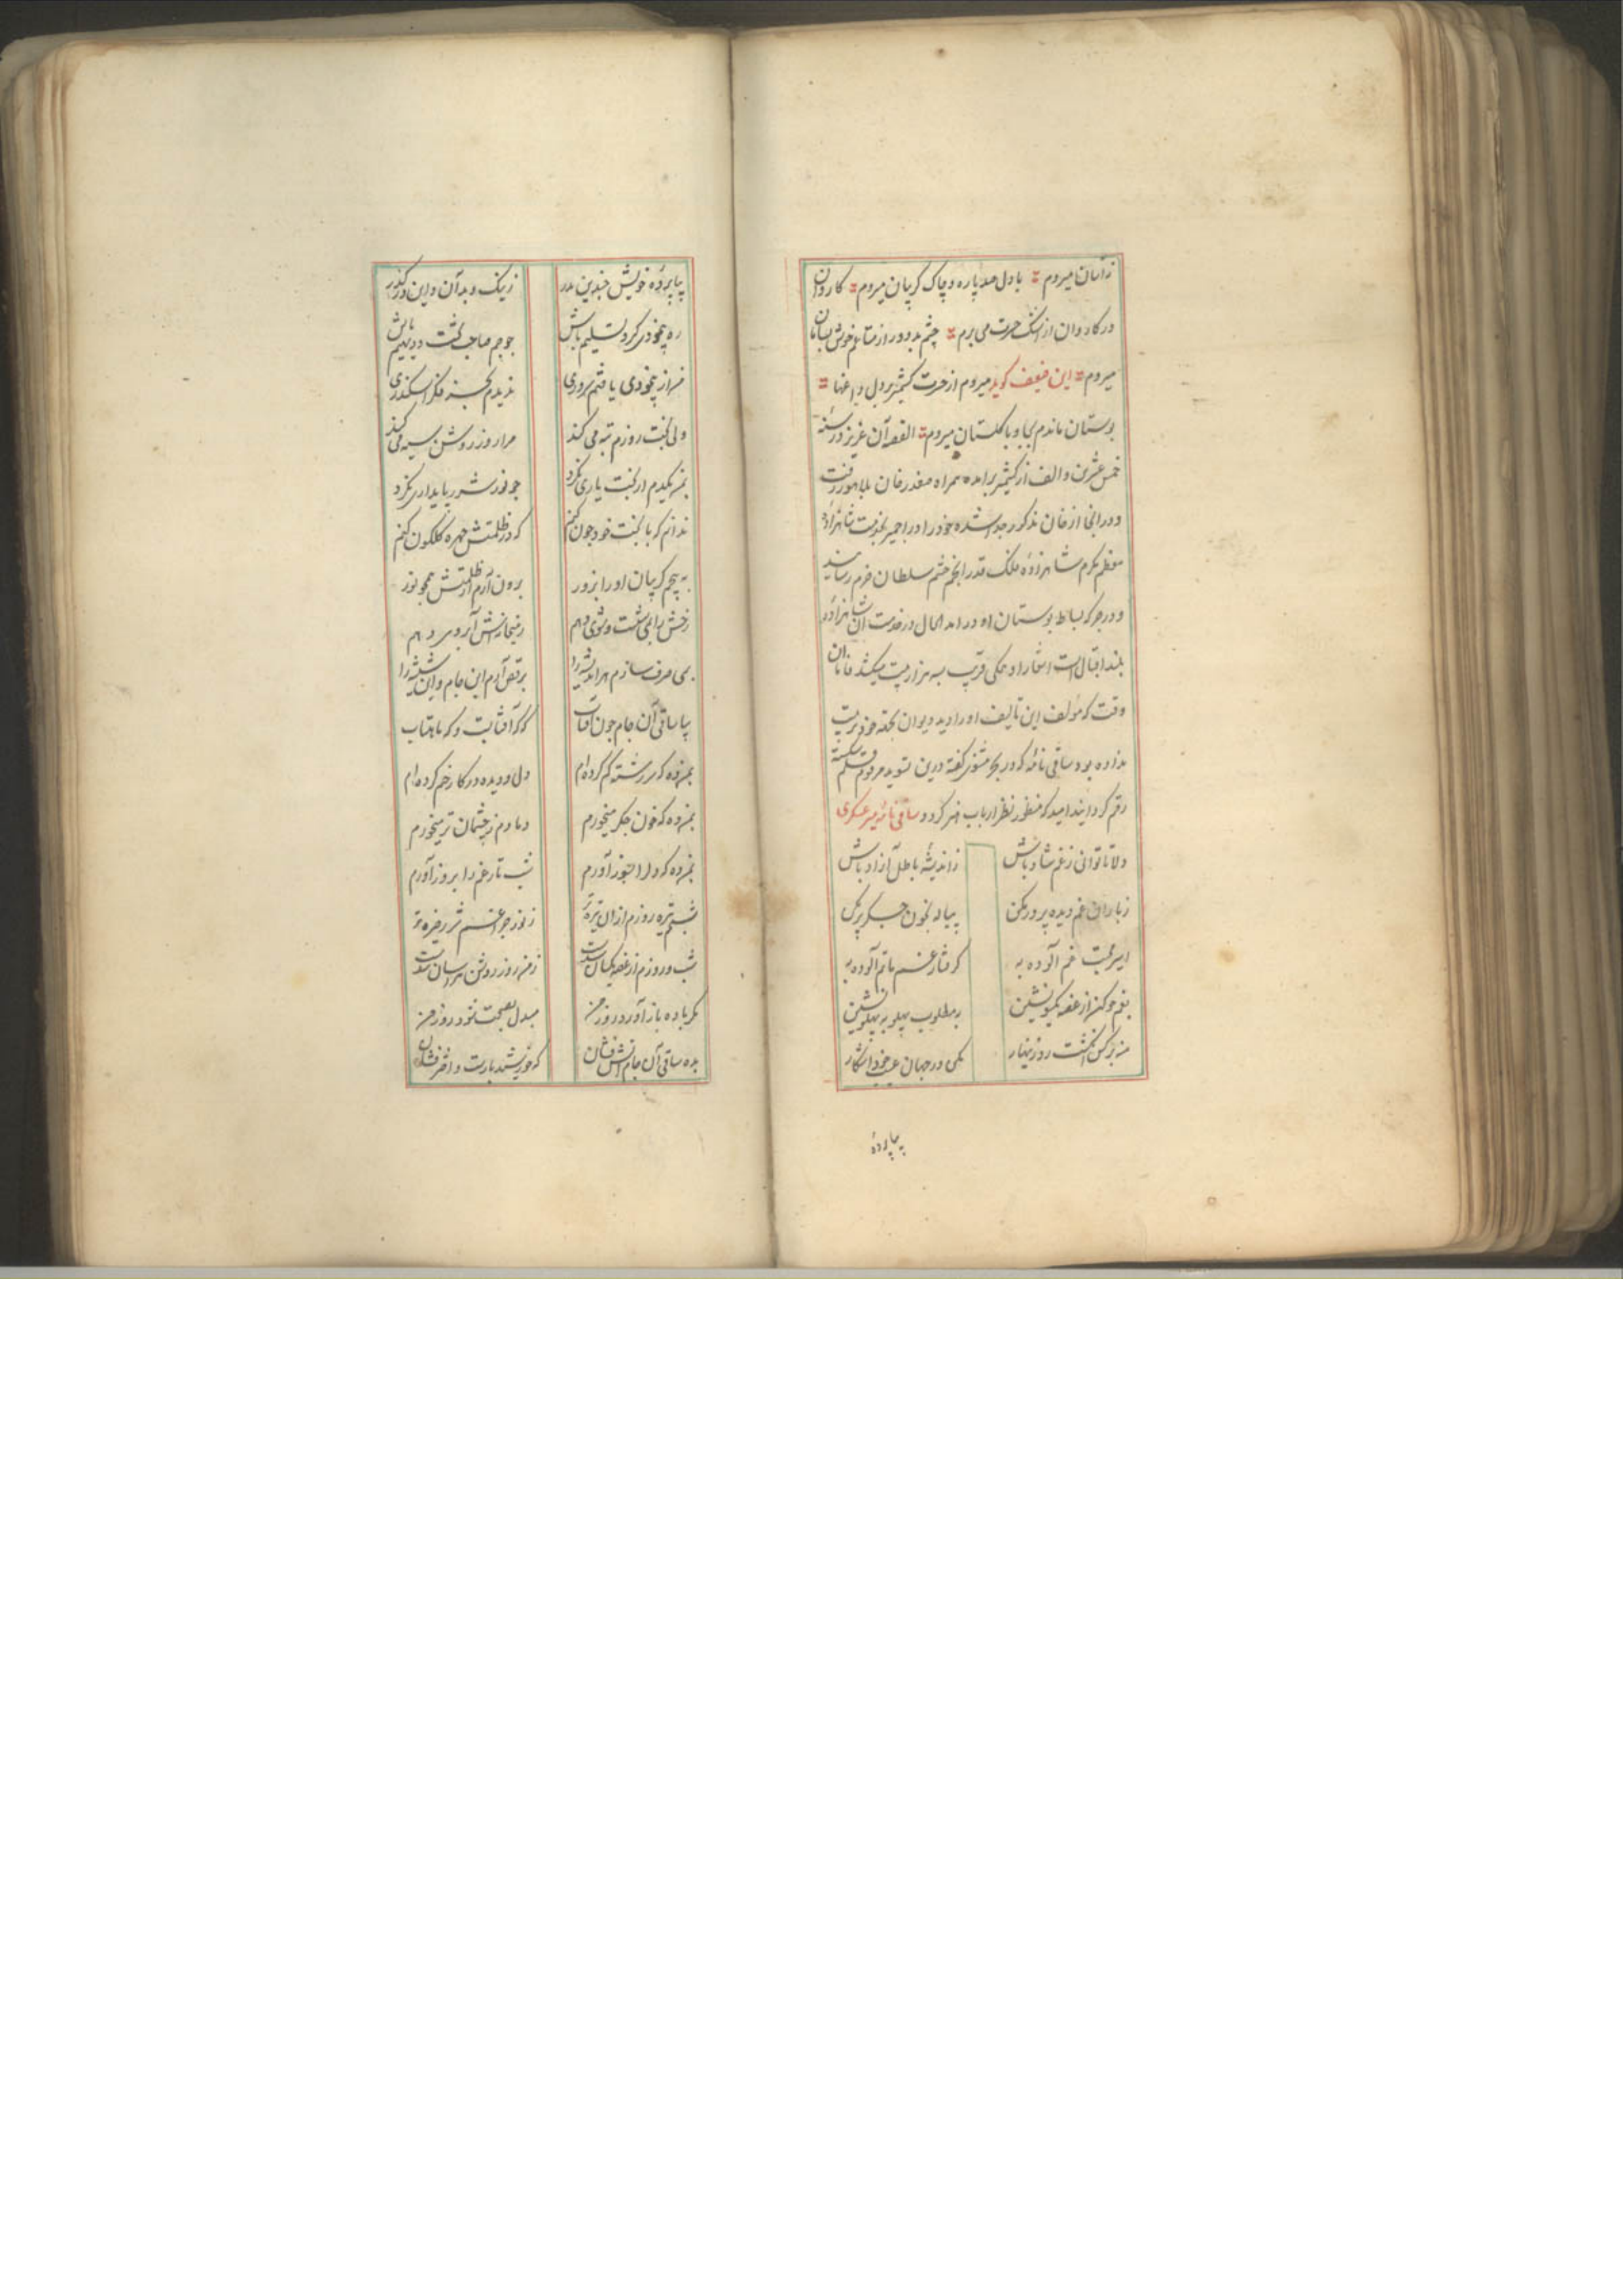 زاسان میروم با دل صد پاره و چاک گریبان میروم کاروان
در کاروان از اشک حسرت می برم چشم بد دور از متاعم خوش بسامان
میروم این ضعیف گوید میروم از حسرت کشمیر بر دل داغها
بوستان ماندم بجا و با گلستان میروم القصه آن عزیز در سنه
خمس عشرین و الف از کشمیر برامده همراه صفدرخان بلاهور رفت
و درانجا از خان مذکور جدا شده خود را در اجمیر بخدمت شاهزاده
معظم مکرم شاهزاده ملک قدر انجم حشم سلطان خرم رسانید
و در جرکه بساط بوستان او درامد الحال در خدمت آن شاهزاده
بلند اقبال است اشعار او همکی قریب به هزار بیت میکشد
وقت که مؤلف این تالیف او را دید دیوان بخته خود ترتیب
نداده بود ساقی نامه که در بحر مثنوی گفته درین تسوید مرقوم قلم شکسته
رقم گردانید امید که منظور نظر ارباب هنر گردد ساقی نامه میر عسکری
دلا تا توانی ز غم شاد باش ز اندیشه باطل آزاد باش
ز باران غم دیده پر در مکن پیاله بخون جگر پر مکن
اسیر محبت غم آلوده به گرفتار غم ماتم آلوده به
بغم خو کن از غصه یکسو نشین به مطلوب پهلو به پهلو نشین
منه بر کس انگشت رد زینهار مکن در جهان عیب خود آشکار
بیا پرده
بیا پرده خویش چندین مدر ز نیک و بد آن و این در گذر
ره بیخودی گیر و تسلیم باش چو جم صاحب تخت و دیهیم باش
من از بیخودی یافتم سروری ندیدم بجز فکر اسکندری
ولی بخت روزم تبه می کند مرا روز روشن سیه می کند
بمن یکدم از بخت یاری نکرد چو نور شرر پایداری نکرد
ندانم که با بخت خود چون کنم که در ظلمتش چهره گلگون کنم
به پیچم گریبان او را بزور برون آرم از ظلمتش همچو نور
رخش را بمی شست و شوی دهم ز میخانه‌اش آبروی دهم
بمی صرف سازم هر اندیشه را برقص آرم این جام و آن شیشه را
بیا ساقی آن جام چون آفتاب که که آفتابست و که ماهتاب
بمن ده که سر رشته گم کرده‌ام دل و دیده در کار خم کرده‌ام
بمن ده که خون جگر میخورم دمادم ز چشمان تر میخورم
بمن ده که دل را بشور آورم شب تار غم را بروز آورم
شبم تیره روزم ازان تیره‌تر ز نور چراغم شرر خیره‌تر
شب و روزم از غصه یکسان شدست ز من روز روشن هراسان شدست
مگر باده باز آورد روز من مبدل بصحبت شود روز من
بده ساقی آن جام آتش فشان که خورشید بارست و اختر فشان